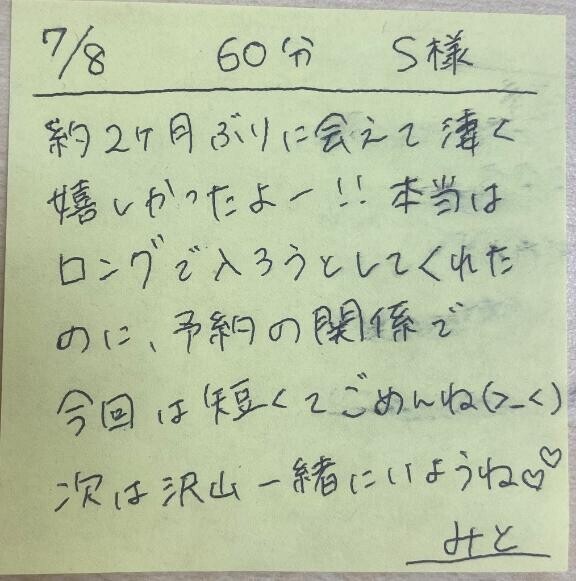 7/8 60分 S様
約2ヶ月ぶりに会えて凄く
嬉しかったよー!!本当は
ロングで入ろうとしてくれた
のに、予約の関係で
今回は短くてごめんね(>_<)
次は沢山一緒にいようね♡♡
みと